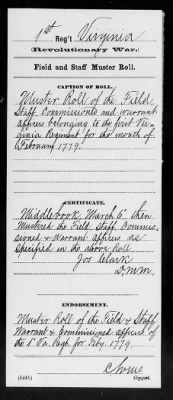 1st Reg't Virginia
Revolutionary War.
Field and Staff Muster Roll.
CAPTION OF ROLL.
Muster Roll of the Field
Staff, Commissioned and warrant
officers belonging to the first Vir-
ginia Regiment for the month of
February 1779.
CERTIFICATE.
Middlebrook, March 6" then
Mustered the Field, Staff, Commis-
sioned & Warrant Officers as
Specified in the above Roll
Jos Clark
D,M.M.
ENDORSEMENT.
Muster Roll of the Field & Staff
Warrant & Commissioned officers of
the 1st Va. Regt for Feby. 1779.
Copyist.